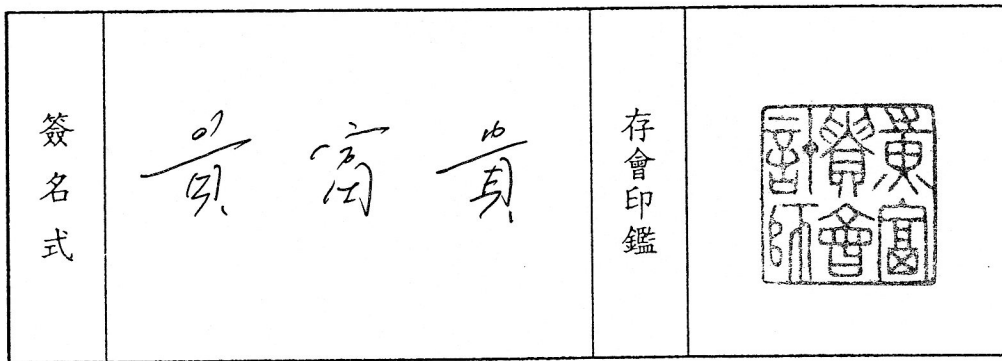 簽名式
黃富貴
存會印鑑
黃富
貴會
計師